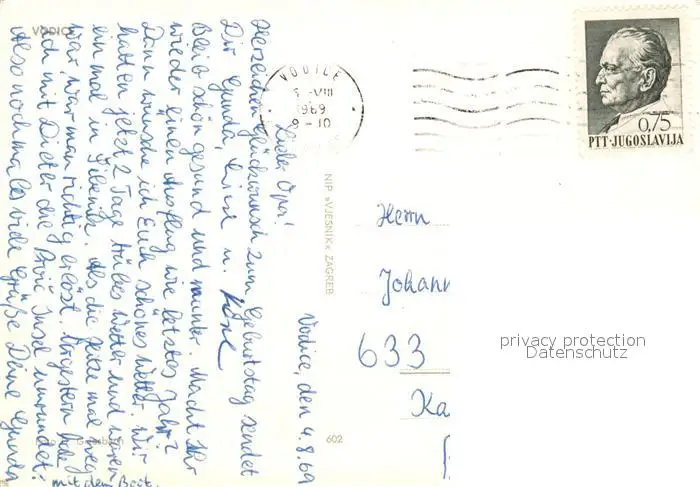 VODICE
Vodice, den 4.8.69
Lieber Opa!
Herzlichen Glückwunsch zum Geburtstag sendet
Dir Gunda, u.
Bleib schön gesund und munter. Macht Ihr
wieder einen Ausflug wie letztes Jahr?
Dann wünsche ich Euch schönes Wetter. Wir
hatten jetzt 2 Tage trübes Wetter und waren
einmal in Šibenik. Als die Hitze mal weg
war, war man richtig erlöst. Vorgestern habe
ich mit Dieter die Insel umrundet.
mit dem Boot.
Also nochmals viele Grüße Deine Gunda
NIP »VJESNIK« ZAGREB
602
VODICE
0,75
PTT·JUGOSLAVIJA
Herrn
Johann
633
Ka
privacy protection
Datenschutz